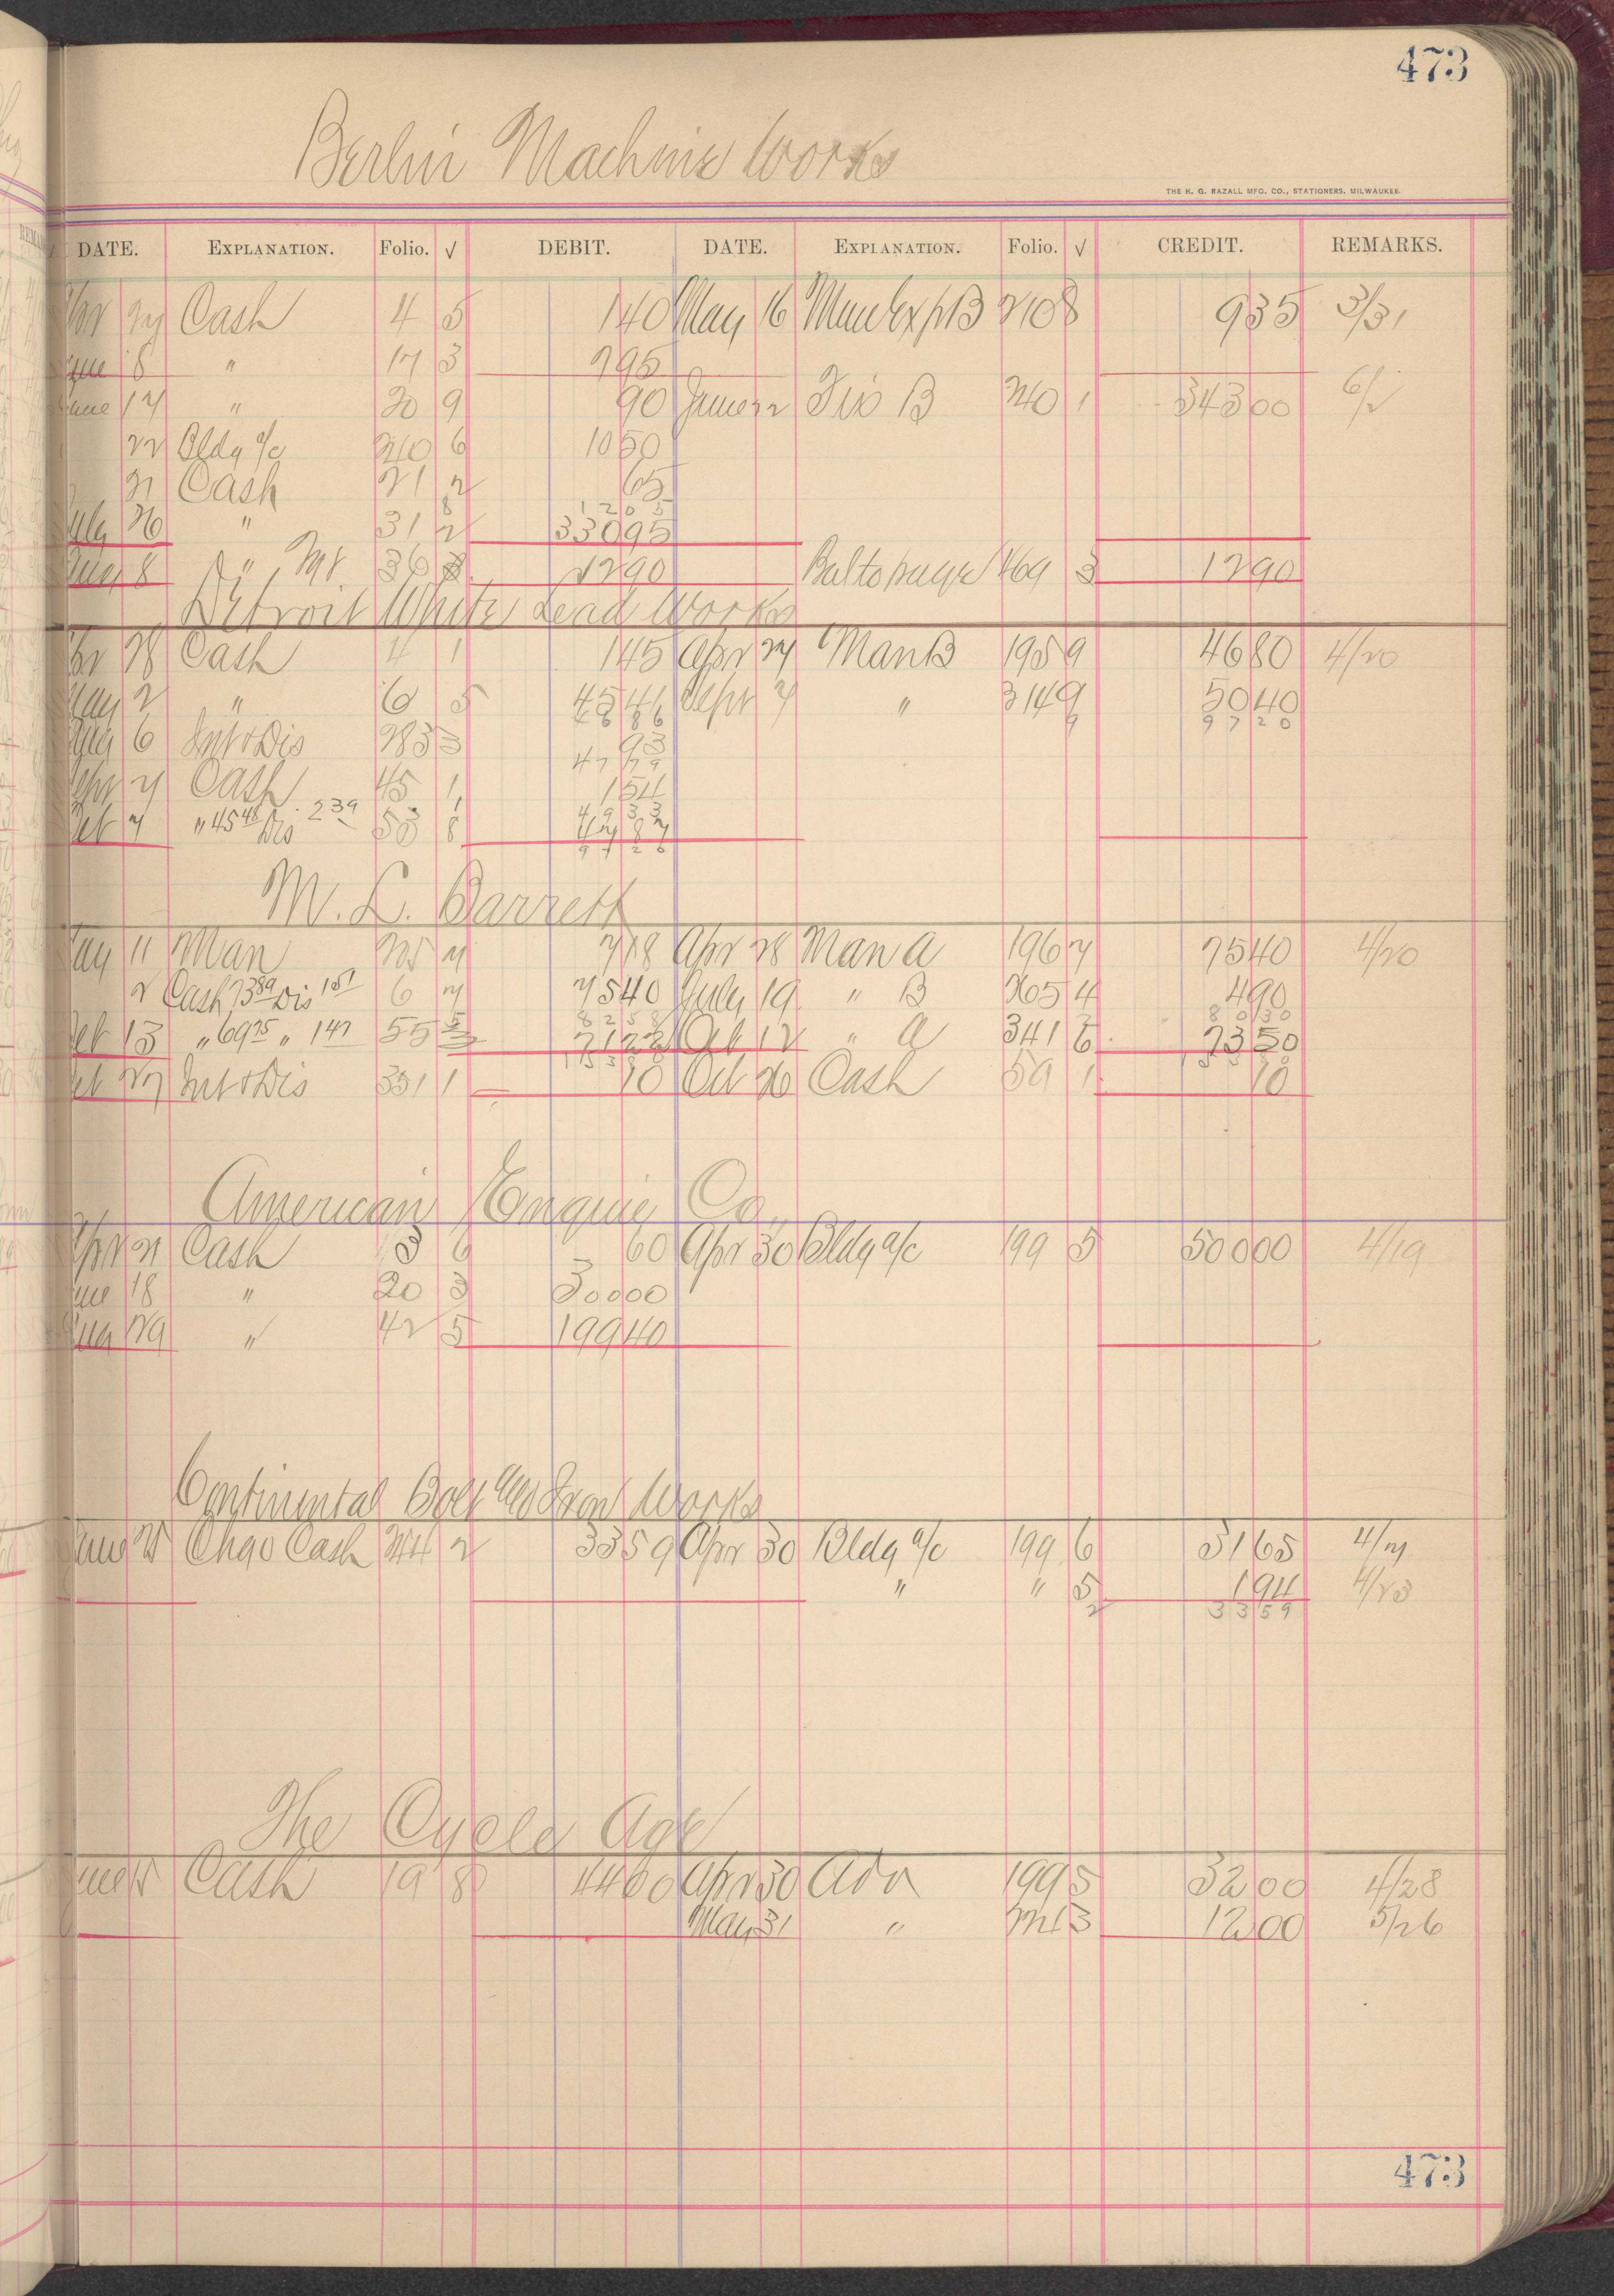 473
Berlin Machine Works
THE H. G. RAZALL MFG. CO., STATIONERS, MILWAUKEE.
DATE. EXPLANATION. Folio. √ DEBIT. DATE. EXPLANATION. Folio. √ CREDIT. REMARKS.
Cash 4 5 1 40 May 16 Man Exp B 210 8 9 35 3/31
June 8 " 17 3 7 95
June 14 " 20 9 90 June 22 Fix B 240 1 343 00 6/2
22 Bldg a/c 240 6 10 50
21 Cash 21 2 65
July 26 " 31 2 330 95
12 05
Aug 8 " 36 3 12 90 Bal to page 469 3 12 90
Detroit White Lead Works
Apr 28 Cash 4 1 1 45 Apr 27 Man B 195 9 46 80 4/20
May 2 " 6 5 45 41 Sept 7 " 314 9 50 40
46 86 97 20
Aug 6 Int & Dis 283 3 93
47 79
Sept 7 Cash 45 1 1 54
49 33
Oct 7 " 45 48 Dis 2 39 53 8 47 87
97 20
M. L. Barrett
May 11 Man 7 18 Apr 28 Man A 196 7 75 40 4/20
2 Cash 73 89 Dis 1 51 6 7 75 40 July 19 " B 265 4 4 90
82 58 80 30
Oct 13 " 69 75 " 1 47 55 5 71 22 Oct 12 " A 341 6 73 50
Oct 27 Int & Dis 351 1 10 Oct 26 Cash 59 1 10
American Engine Co.
Apr 21 Cash 3 6 60 Apr 30 Bldg a/c 199 5 500 00 4/19
June 18 " 20 3 300 00
Aug 29 " 42 5 199 40
Continental Bolt and Iron Works
June 25 Chgo Cash 244 2 33 59 Apr 30 Bldg a/c 199 6 31 65 4/7
" " 5 1 94 4/23
33 59
The Cycle Age
June 15 Cash 19 8 44 00 Apr 30 Adv 199 5 32 00 4/28
May 31 " 3 12 00 5/26
473